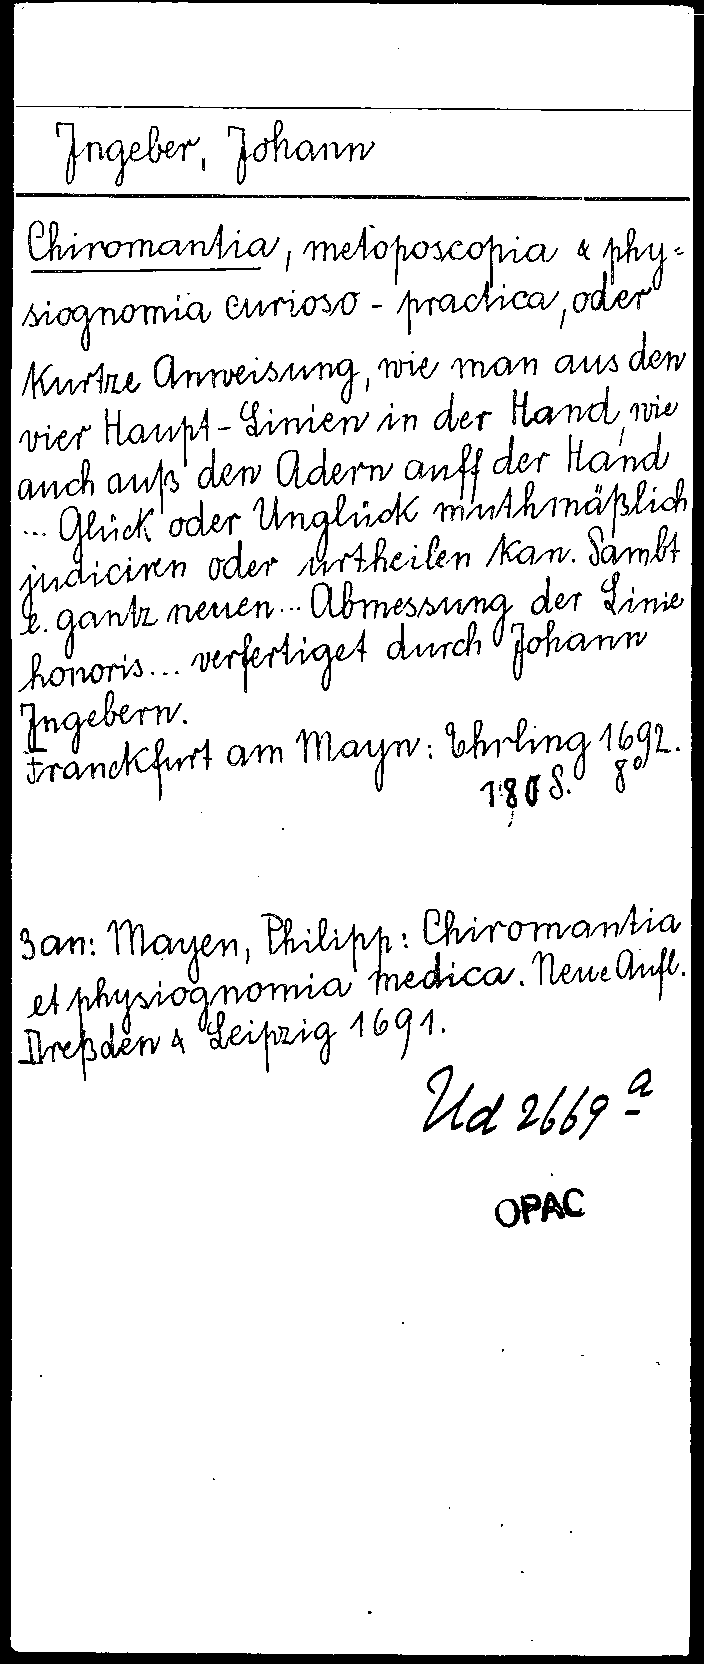 Ingeber, Johann
Chiromantia, metoposcopia & phy-
siognomia curioso-practica, oder
Kurtze Anweisung, wie man aus den
vier Haupt-Linien in der Hand, wie
auch auß den Adern auff der Hand
... Glück oder Unglück muthmäßlich
judiciren oder urtheilen kan. Sambt
e. gantz neuen ... Abmessung der Linie
honoris ... verfertiget durch Johann
Ingebern.
Franckfurt am Mayn: Ehrling 1692.
180 S. 8°
3an: Mayen, Philipp: Chiromantia
et physiognomia medica. Neue Aufl.
Dreßden & Leipzig 1691.
Ud 2669 a
OPAC